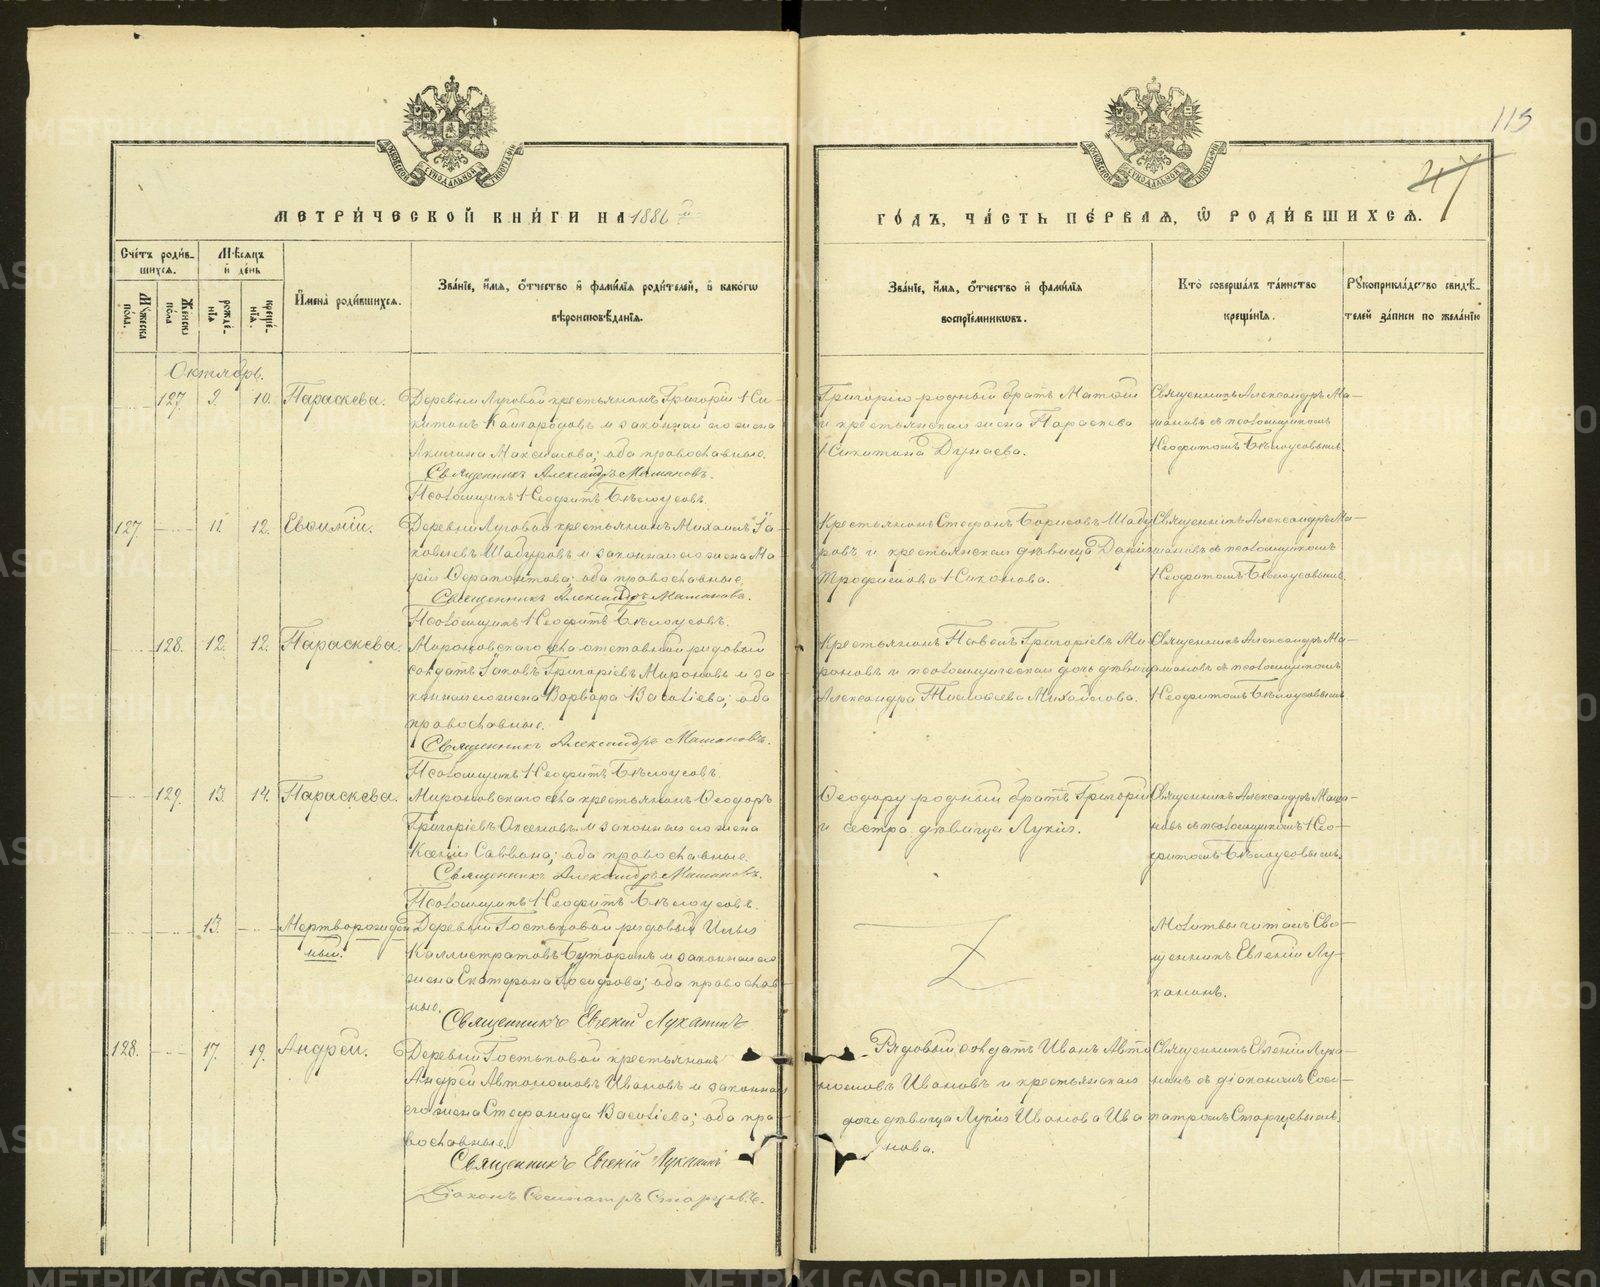 115
47
МЕТРИ́ЧЕСКОЙ КНИ́ГИ НА 1886 й
ГО́ДЪ, ЧА́СТЬ ПЕ́РВАЯ, Ѡ РОДИ́ВШИХСЯ.
Сче́тъ роди́в-
шихся.
Му́жеска по́ла.
Же́нска по́ла
Мѣ́сяцъ
и҆ де́нь
рожде́-
нїя
креще́-
нїя.
И҆мена̀ роди́вшихся.
Зва́нїе, и҆́мя, ѻ҆́тчество и҆ фами́лїя роди́телей, и҆ како́гѡ
вѣроисповѣ́данїя.
Зва́нїе, и҆́мя, ѻ҆́тчество и҆ фами́лїя
воспрїе́мникѡвъ.
Кто̀ соверша́лъ та́инство
креще́нїя.
Рꙋкоприкла́дство свидѣ́-
телей за́писи по жела́нїю
Октябрь.
127. 9. 10. Параскева.
Деревни Луговой крестьянинъ Григорій Ни-
китинъ Кайгородовъ и законная его жена
Акилина Максимова; оба православные.
Священникъ Александръ Машановъ.
Псаломщикъ Неофитъ Бѣлоусовъ.
Григорію родный братъ Матѳій
и крестьянская жена Параскева
Никитина Дунаева.
Священникъ Александръ Ма-
шановъ съ псаломщикомъ
Неофитомъ Бѣлоусовымъ.
127. 11. 12. Евѳимій.
Деревни Луговой крестьянинъ Михаилъ Іа-
ковлевъ Шабуровъ и законная его жена Ма-
рія Ѳерапонтова; оба православные.
Священникъ Александръ Машановъ.
Псаломщикъ Неофитъ Бѣлоусовъ.
Крестьянинъ Стефанъ Борисовъ Шабу
ровъ и крестьянская дѣвица Дарія
Трофимова Никонова.
Священникъ Александръ Ма-
шановъ съ псаломщикомъ
Неофитомъ Бѣлоусовымъ.
128. 12. 12. Параскева.
Мироновскаго села отставной рядовый
солдатъ Іаковъ Григоріевъ Мироновъ и за
конная его жена Варвара Василіева; оба
православные.
Священникъ Александръ Машановъ.
Псаломщикъ Неофитъ Бѣлоусовъ.
Крестьянинъ Павелъ Григоріевъ Ми
роновъ и псаломщическая дочь дѣвица
Александра Михайлова.
Священникъ Александръ Ма-
шановъ съ псаломщикомъ
Неофитомъ Бѣлоусовымъ.
129. 13. 14. Параскева.
Мироновскаго села крестьянинъ Ѳеодоръ
Григоріевъ Аксеновъ и законная его жена
Ксенія Саввина; оба православные.
Священникъ Александръ Машановъ.
Псаломщикъ Неофитъ Бѣлоусовъ.
Ѳеодору родный братъ Григорій
и сестра дѣвица Лукія.
Священникъ Александръ Маша-
новъ съ псаломщикомъ Нео-
фитомъ Бѣлоусовымъ.
13. Мертворожден
ный.
Деревни Гостьковой рядовый Илья
Каллистратовъ Буторинъ и законная его
жена Екатерина Іосифова; оба православ
ные.
Священникъ Евгеній Луканинъ
Молитвы читалъ Свя-
щенникъ Евгеній Лу-
канинъ.
128. 17. 19. Андрей.
Деревни Гостьковой крестьянинъ
Андрей Автономовъ Ивановъ и законная
его жена Стефанида Василіева; оба пра-
вославные.
Священникъ Евгеній Луканинъ
Діаконъ Сосипатръ Старцевъ.
Рядовый солдатъ Иванъ Авто
номовъ Ивановъ и крестьянская
дочь дѣвица Лукія Иванова Ива
нова.
Священникъ Евгеній Лука-
нинъ съ діакономъ Соси-
патромъ Старцевымъ.